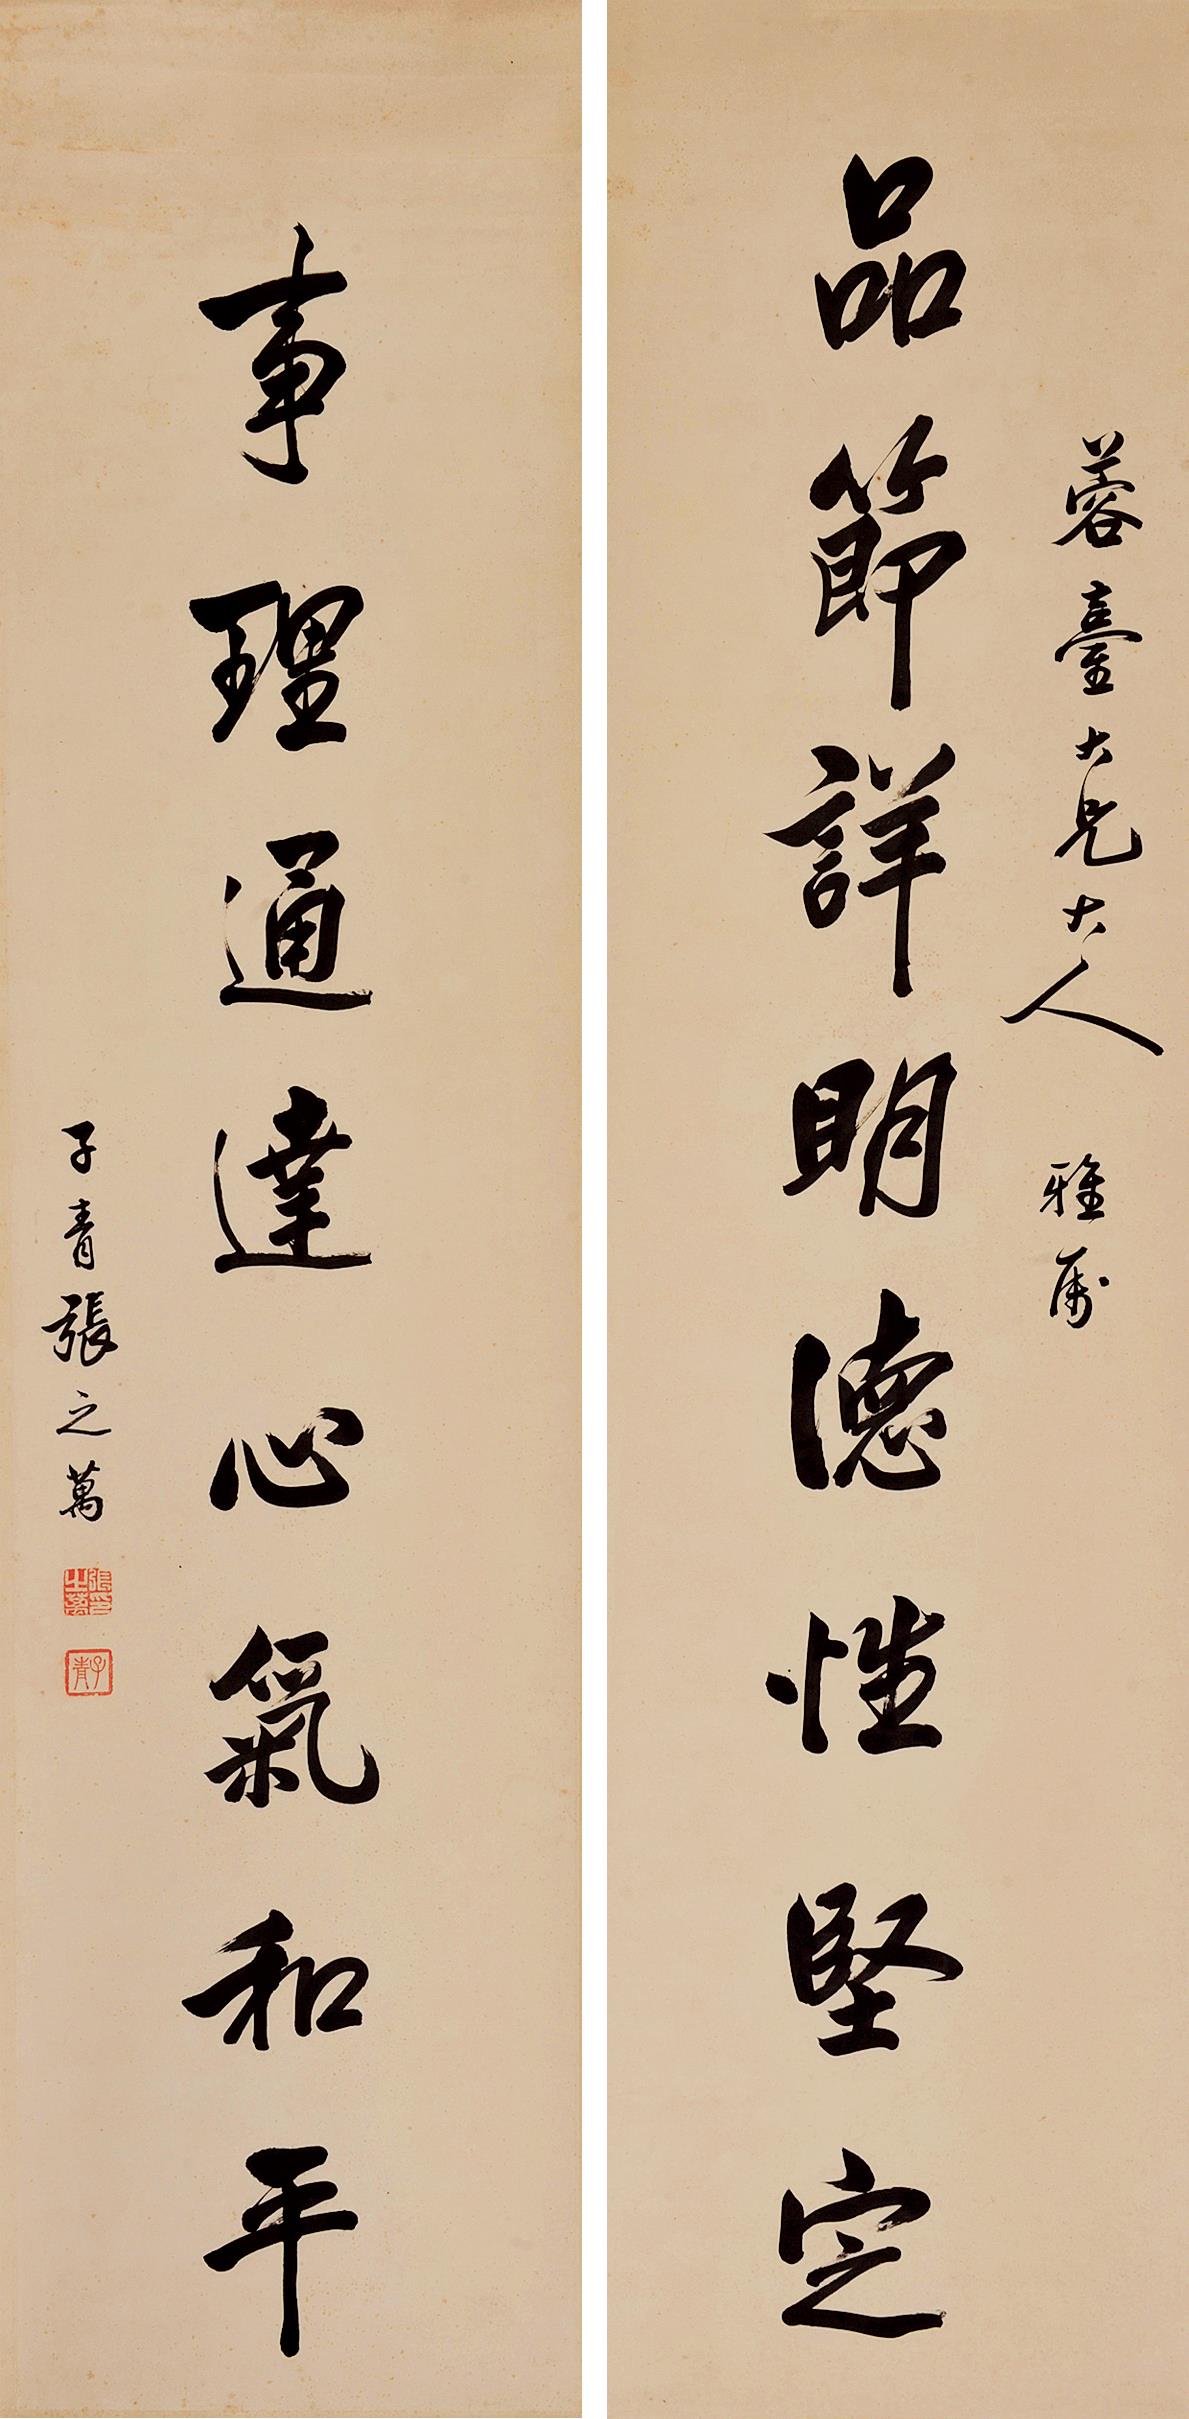 蓉臺大兄大人雅屬
品節詳明德性堅定
事理通達心氣和平
子青張之萬
張之萬印
子青